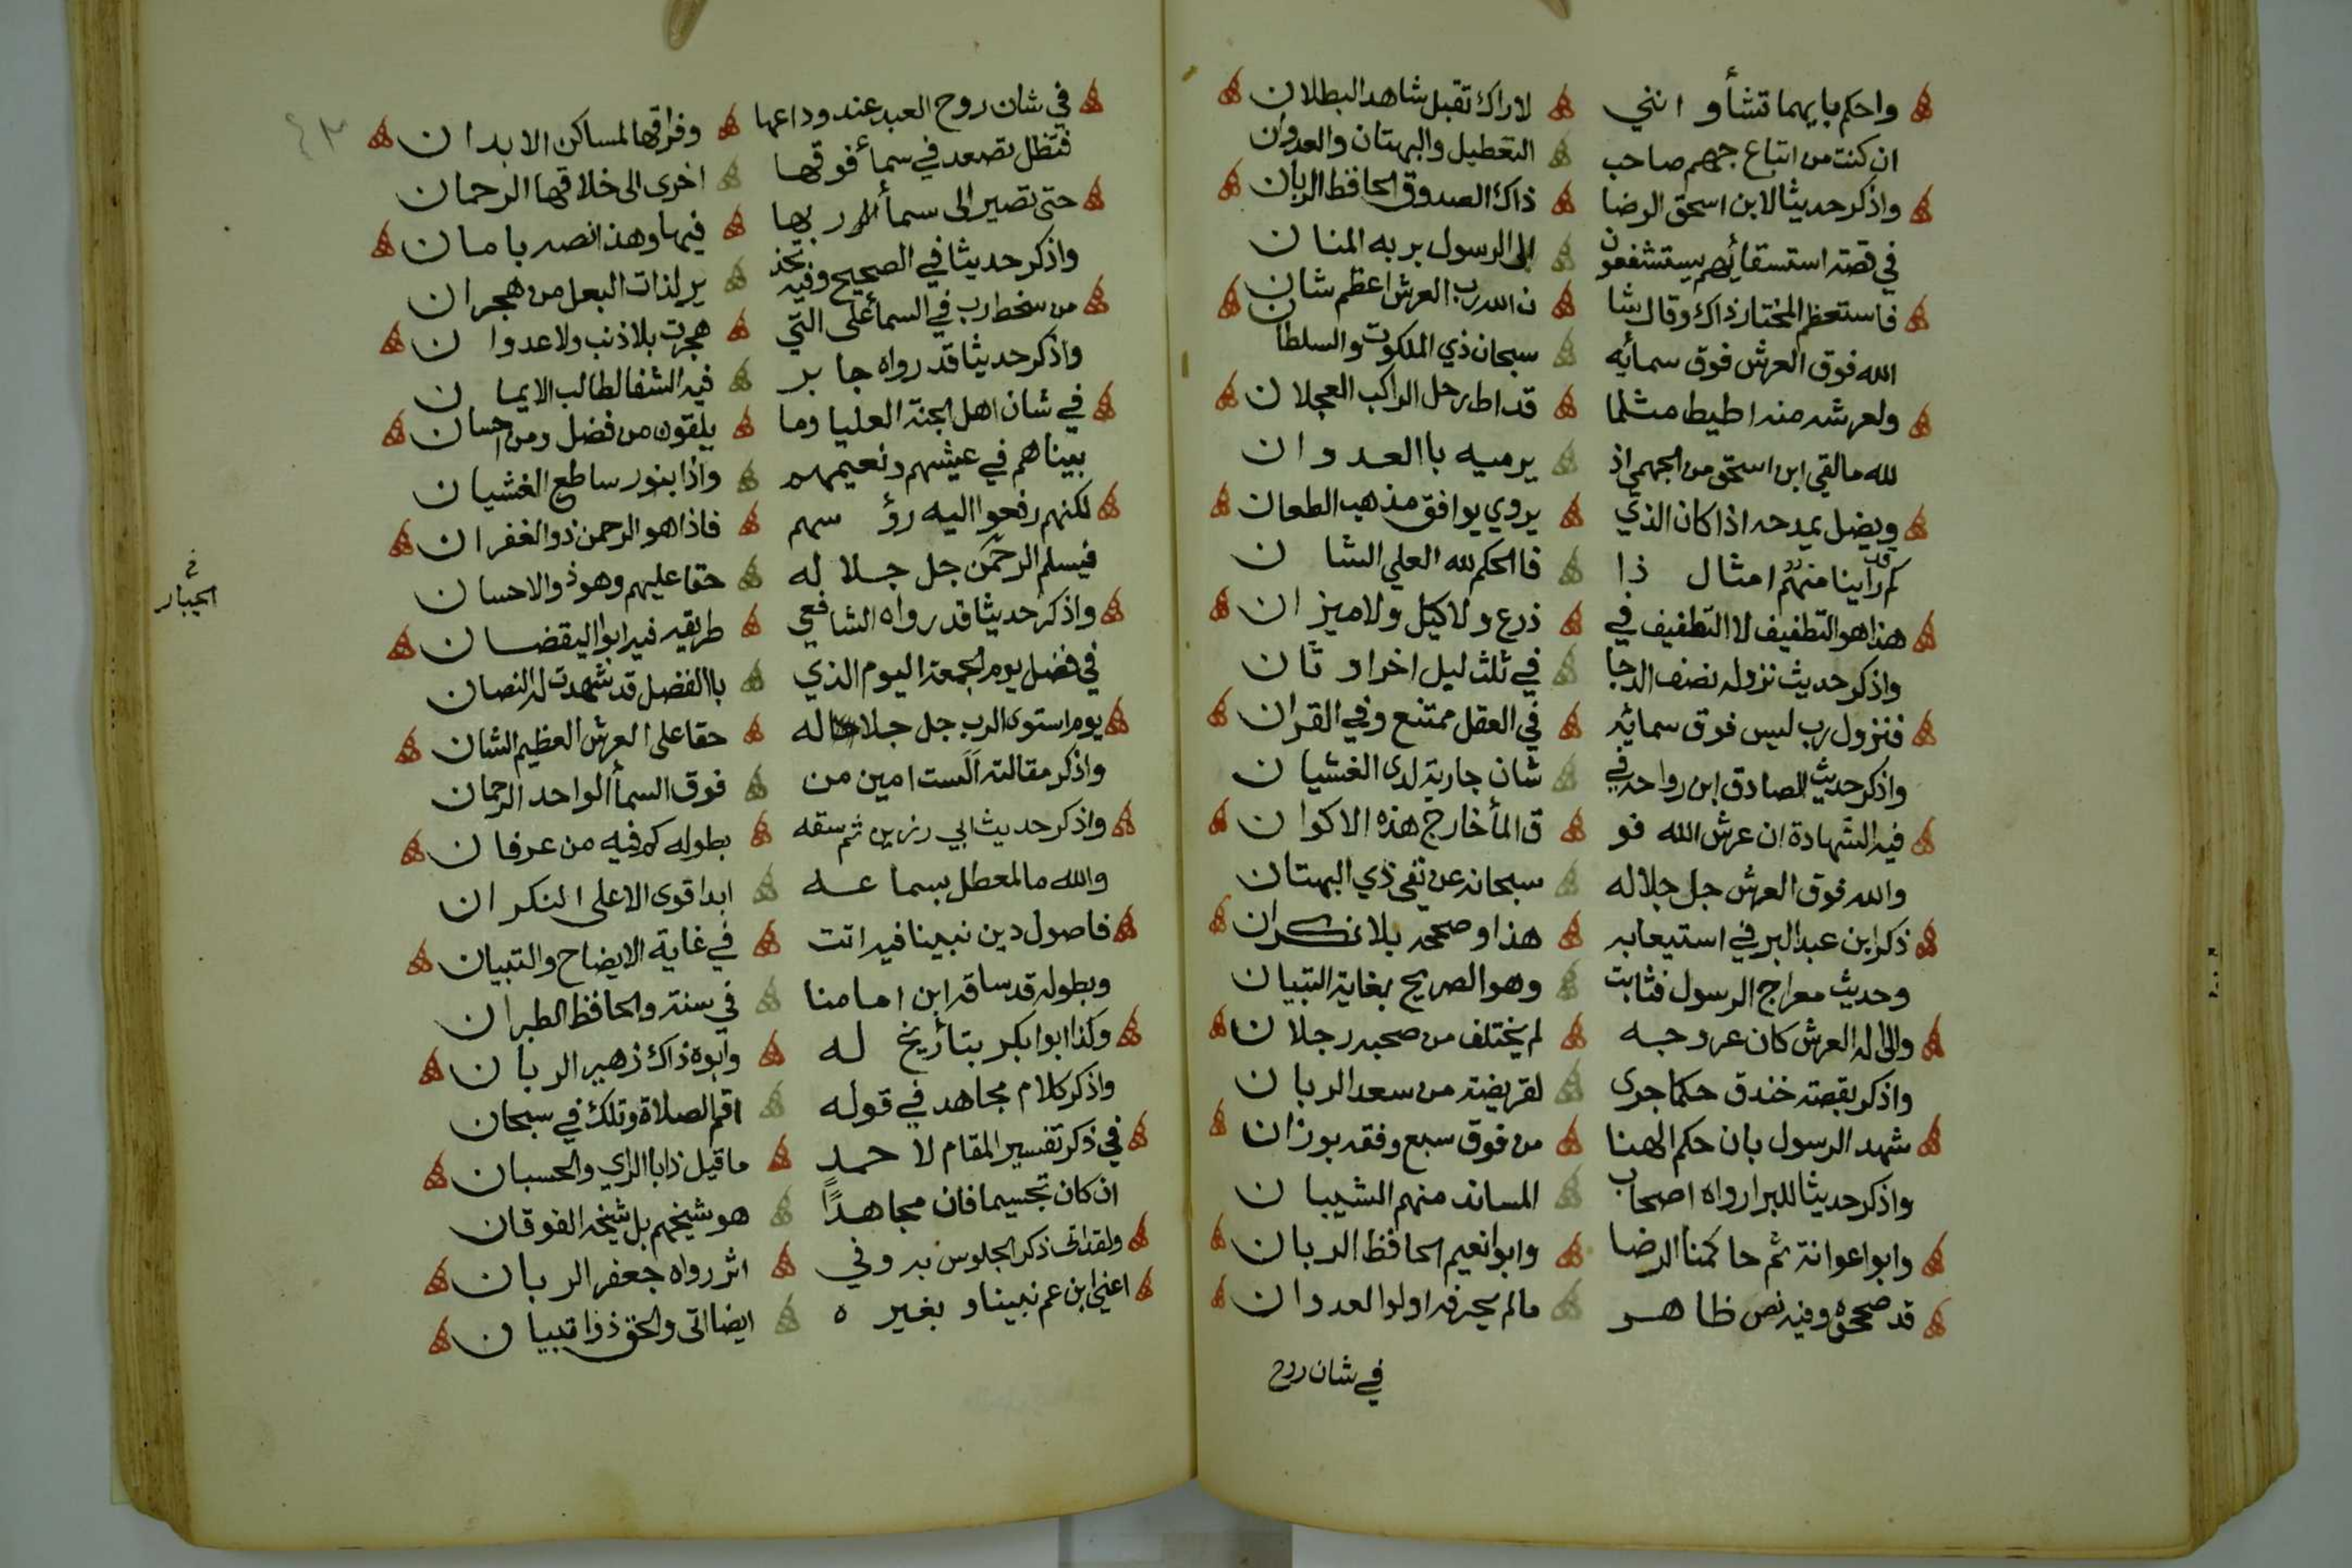 واحكم بايهما تشأ و انني لاراك تقبل شاهد البطلان
ان كنت من اتباع جهم صاحب التعطيل والبهتان والعدوان
واذكر حديثا لابن اسحق الرضا ذاك الصدوق الحافظ الربان
في قصة استسقائهم يستشفعون الى الرسول بربه المنان
فاستعظم المختار ذاك وقال شا ن الله رب العرش اعظم شان
الله فوق العرش فوق سمائه سبحان ذي الملكوت والسلطان
ولعرشه منه اطيط مثلما قد اط رحل الراكب العجلان
لله ما لقي ابن اسحق من الجهمي اذ يرميه باالعدوان
ويضل يمدحه اذا كان الذي يروي يوافق مذهب الطعان
كم قد راينا منهم امثال ذا فاالحكم لله العلي الشان
هذا هو التطفيف لا التطفيف في ذرع ولا كيل ولا ميزان
واذكر حديث نزوله نصف الدجا في ثلث ليل اخر او ثان
فنزول رب ليس فوق سمائه في العقل ممتنع وفي القران
واذكر حديث الصادق ابن رواحة في شان جارية لدى الغشيان
فيه الشهادة ان عرش الله فو ق المأ خارج هذه الاكوان
والله فوق العرش جل جلاله سبحانه عن نفي ذي البهتان
ذكر ابن عبد البر في استيعابه هذا وصححه بلا نكران
وحديث معراج الرسول فثابت وهو الصريح بغاية التبيان
والى اله العرش كان عروجه لم يختلف من صحبه رجلان
واذكر بقصة خندق حكما جرى لقريضة من سعد الربان
شهد الرسول بان حكم الهنا من فوق سبع وفقه بوزان
واذكر حديثا للبرا رواه اصحاب المساند منهم الشيبان
وابوا عوانة ثم حاكمنا الرضا وابوا نعيم الحافظ الربان
قد صححوه وفيه نص ظاهر مالم يحرفه اولوا العدوان
في شان روح
في شان روح العبد عند وداعها وفراقها لمساكن الابدان
فتظل تصعد في سمأ فوقها اخرى الى خلاقها الرحمان
حتى تصير الى سمأ ربها فيها وهذا نصه بامان
واذكر حديثا في الصحيح وفيه تحذ ير لذات البعل من هجران
من سخط رب في السمأ على التي هجرت بلا ذنب ولا عدوان
واذكر حديثا قد رواه جابر فيه الشفا لطالب الايمان
في شان اهل الجنة العليا وما يلقون من فضل ومن احسان
بيناهم في عيشهم ونعيمهم واذا بنور ساطع الغشيان
لكنهم رفعوا اليه رؤسهم فاذا هو الرحمن ذو الغفران
فيسلم الرحمن جل جلاله حقا عليهم وهو ذو الاحسان
في الجبار
واذكر حديثا قد رواه الشافعي طريقه فيه ابوا اليقضان
في فضل يوم الجمعة اليوم الذي باالفضل قد شهدت له النصان
يوم استوى الرب جل جلاله حقا على العرش العظيم الشان
واذكر مقالته ألست امين من فوق السمأ الواحد الرحمان
واذكر حديث ابي رزين ثم سقه بطوله كم فيه من عرفان
والله ما لمعطل بسماعه ابدا قوى الا على النكران
فاصول دين نبينا فيه اتت في غاية الايضاح والتبيان
وبطوله قد ساقه ابن امامنا في سنة والحافظ الطبران
وكذا ابوا بكر بتأريخ له وابوه ذاك زهير الربان
واذكر كلام مجاهد في قوله اقم الصلاة وتلك في سبحان
في ذكر تفسير المقام لاحمد ما قيل ذا باالراي والحسبان
ان كان تجسيما فان مجاهدًا هو شيخهم بل شيخه الفوقان
ولقد اتى ذكر الجلوس به وفي اثر رواه جعفر الربان
اعني ابن عم نبينا وبغيره ايضا اتى والحق ذو اتبيان